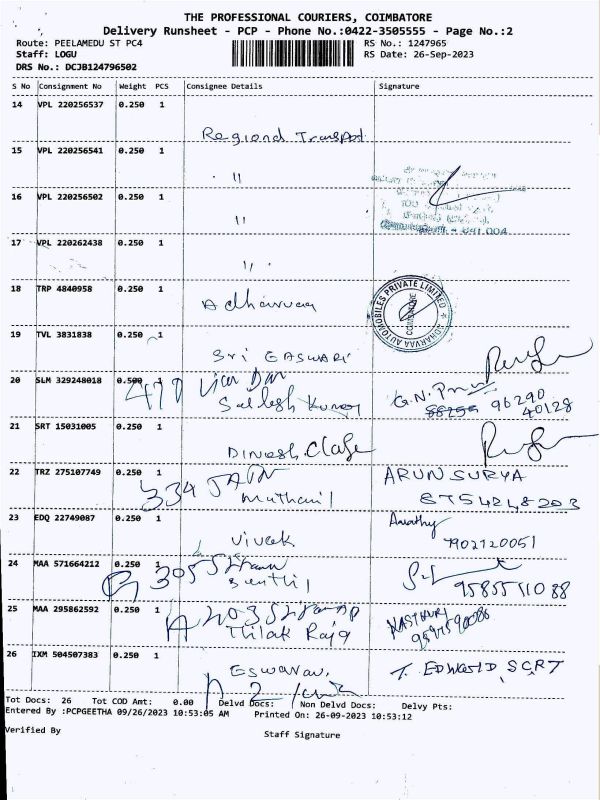 THE PROFESSIONAL COURIERS, COIMBATORE
Delivery Runsheet - PCP - Phone No.:0422-3505555 - Page No.:2
Route: PEELAMEDU ST PC4 RS No.: 1247965
Staff: LOGU RS Date: 26-Sep-2023
DRS No.: DCJB124796502
S No Consignment No Weight PCS Consignee Details Signature
14 VPL 220256537 0.250 1
Regional Transport
15 VPL 220256541 0.250 1
"
16 VPL 220256502 0.250 1
"
17 VPL 220262438 0.250 1
"
18 TRP 4840958 0.250 1
ADHARVAA AUTOMOBILES PRIVATE LIMITED
COIMBATORE
19 TVL 3831838 0.250 1
Sri EASWARI
20 SLM 329248018 0.500 1
G.N. 96290
40128
21 SRT 15031005 0.250 1
Dinesh
22 TRZ 275107749 0.250 1 ARUN SURYA
334
23 EDQ 22749087 0.250 1
Vivek 7902120051
24 MAA 571664212 0.250 1
305 Senthil 9585511088
25 MAA 295862592 0.250 1
Thilak Raja
26 IXM 504507383 0.250 1
Eswaran
Tot Docs: 26 Tot COD Amt: 0.00 Delvd Docs: Non Delvd Docs: Delvy Pts:
Entered By :PCPGEETHA 09/26/2023 10:53:05 AM Printed On: 26-09-2023 10:53:12
Verified By Staff Signature